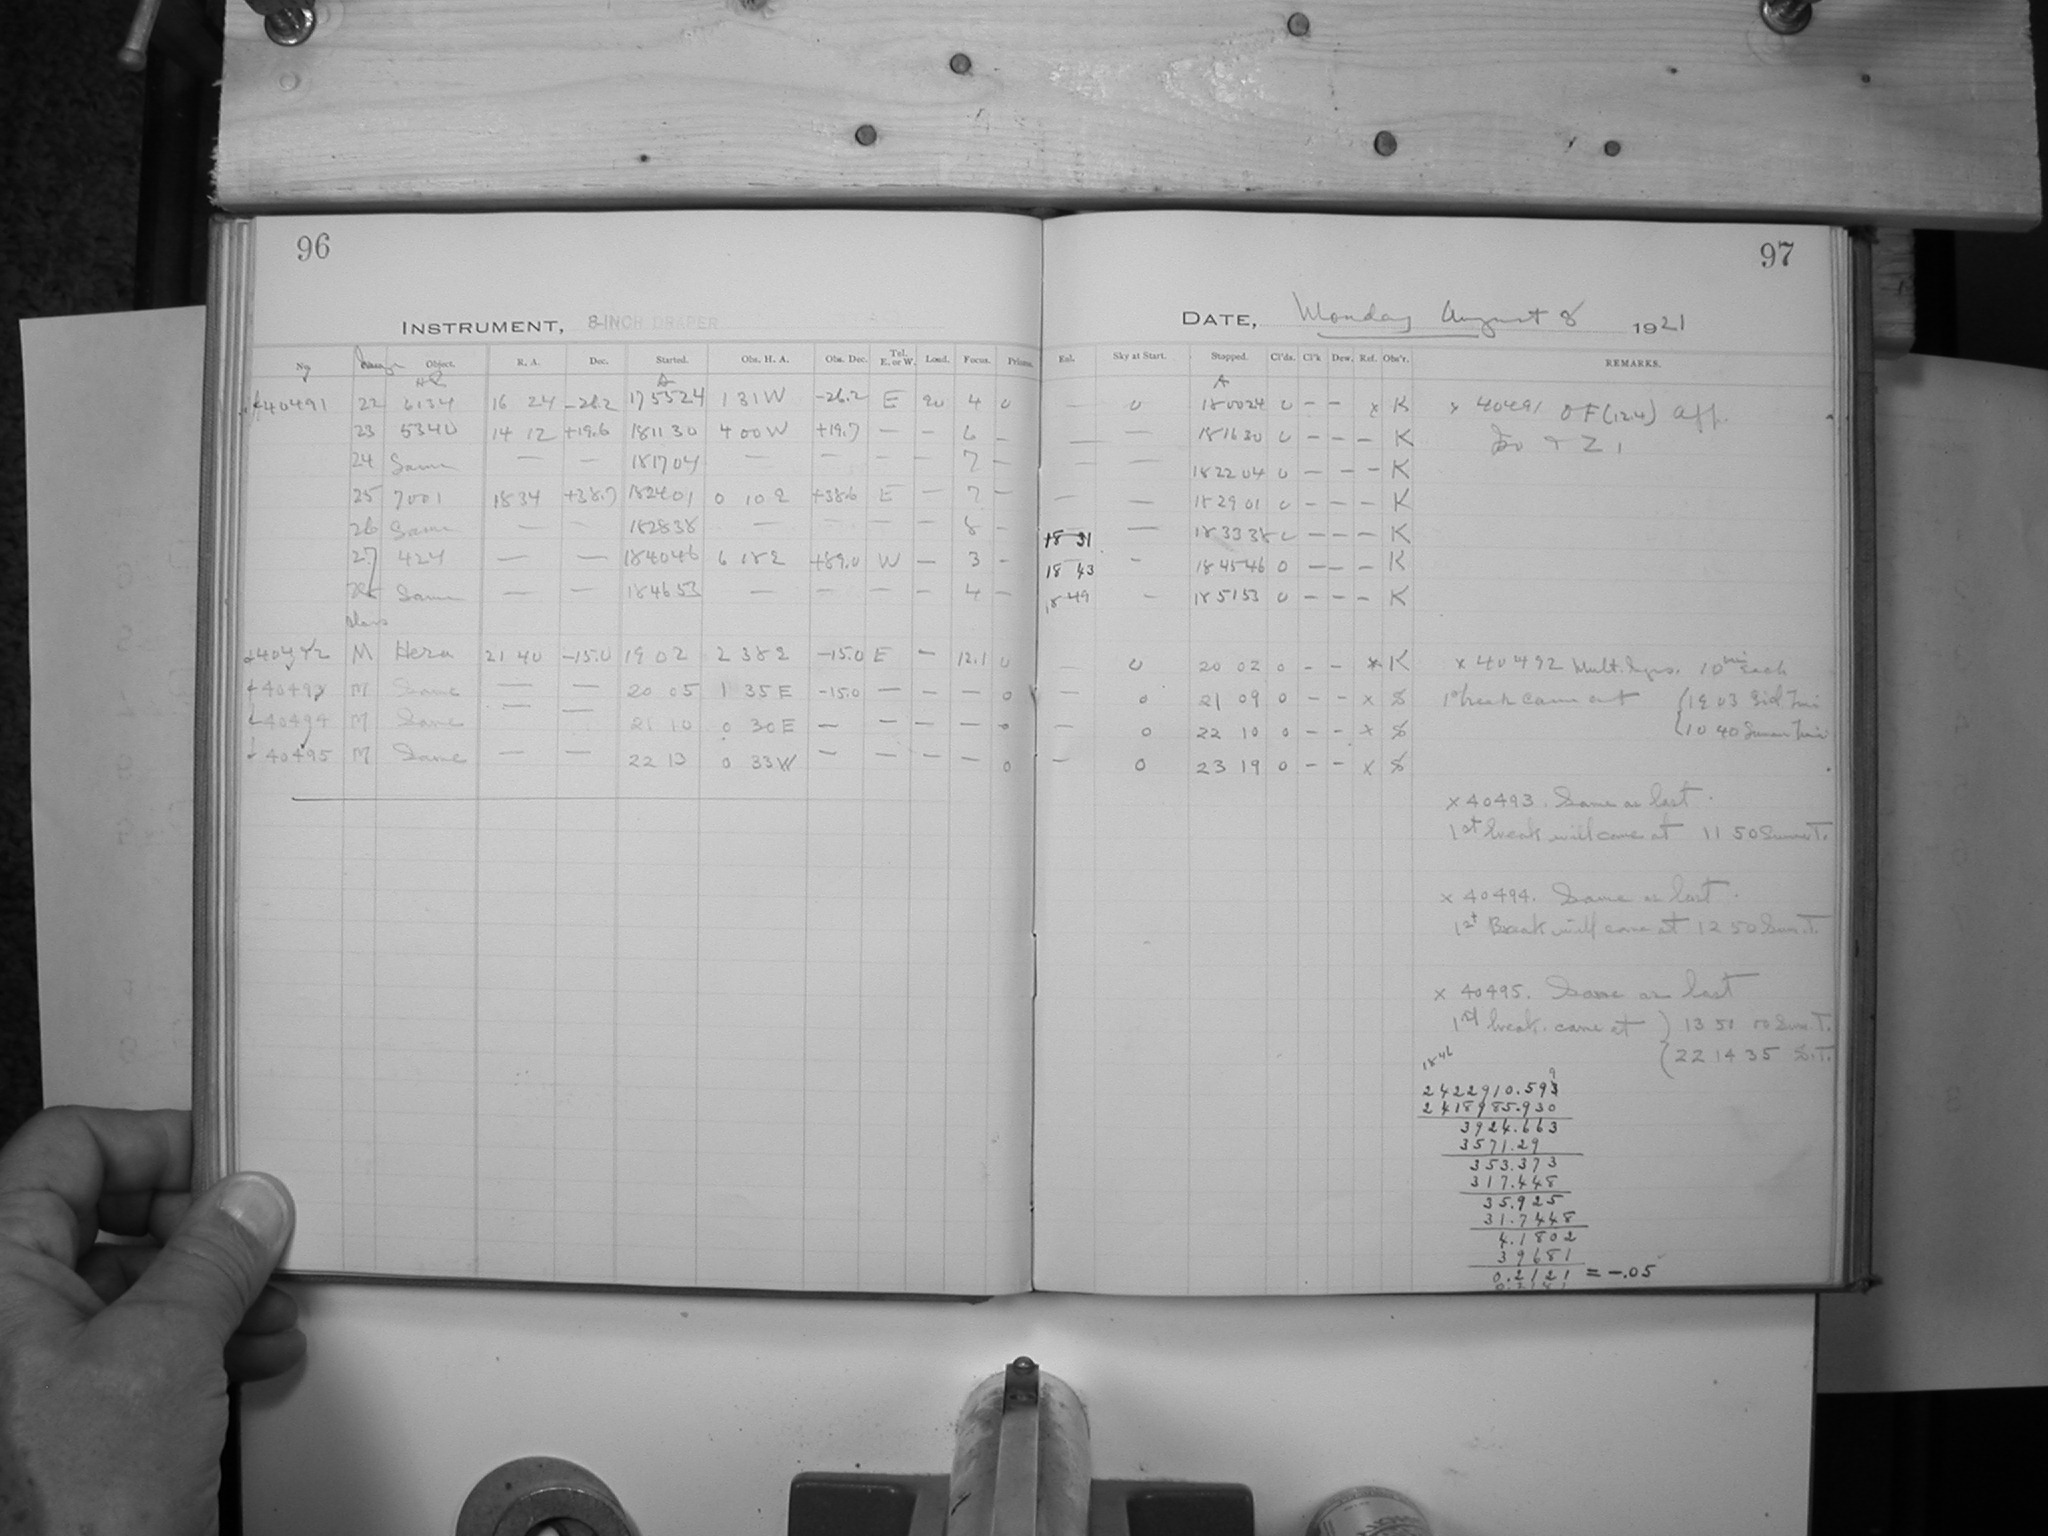 96
97
INSTRUMENT, 8-INCH DRAPER
DATE, Monday August 8 1921
No. Object. R. A. Dec. Started. Obs. H. A. Obs. Dec. Tel. E. or W. Load. Focus. Prisms. Rol. Sky at Start. Stopped. Cl'ds. Cl'k Dew. Ref. Obs'r. REMARKS.
40491 22 6134 16 24 -26.2 175524 1 31 W -26.2 E 20 4 0 — 0 180024 0 — — x K x 40491 OF (12.4) app.
23 5340 14 12 +19.6 181130 4 00 W +19.7 — — 6 — — — 181630 0 — — — K
24 Same — — 181704 — — — — 7 — — — 182204 0 — — — K
25 7001 18 34 +38.7 182401 0 10 E +38.6 E — 7 — — — 182901 0 — — — K
26 Same — — 182838 — — 8 — 18 31 — 183338 0 — — — K
27 424 — — 184046 6 18 E +89.0 W — 3 — 18 43 — 184546 0 — — — K
28 Same — — 184653 — — — — 4 — 18 49 — 185153 0 — — — K
40492 M Hera 21 40 -15.0 19 02 2 38 E -15.0 E — 12.1 0 — 0 20 02 0 — — x K x 40492 Mult. Exps. 10 min each
40493 M Same — — 20 05 1 35 E -15.0 — — — 0 — 0 21 09 0 — — x S 1st break came out { 19 03 Sid Time
40494 M Same — — 21 10 0 30 E — — — — 0 — 0 22 10 0 — — x S { 10 40 Summer Time
40495 M Same — — 22 13 0 33 W — — — — 0 — 0 23 19 0 — — x S
x 40493. Same as last.
1st break will come at 11 50 Summ T.
x 40494. Same as last.
1st Break will come at 12 50 Sum. T.
x 40495. Same as last
1st break came at } 13 50 00 Sum. T.
{ 22 14 35 S.T.
18 46
9
2422910.593
2418985.930
3924.663
3571.29
353.373
317.448
35.925
31.7448
4.1802
39681
0.2121 = -.05